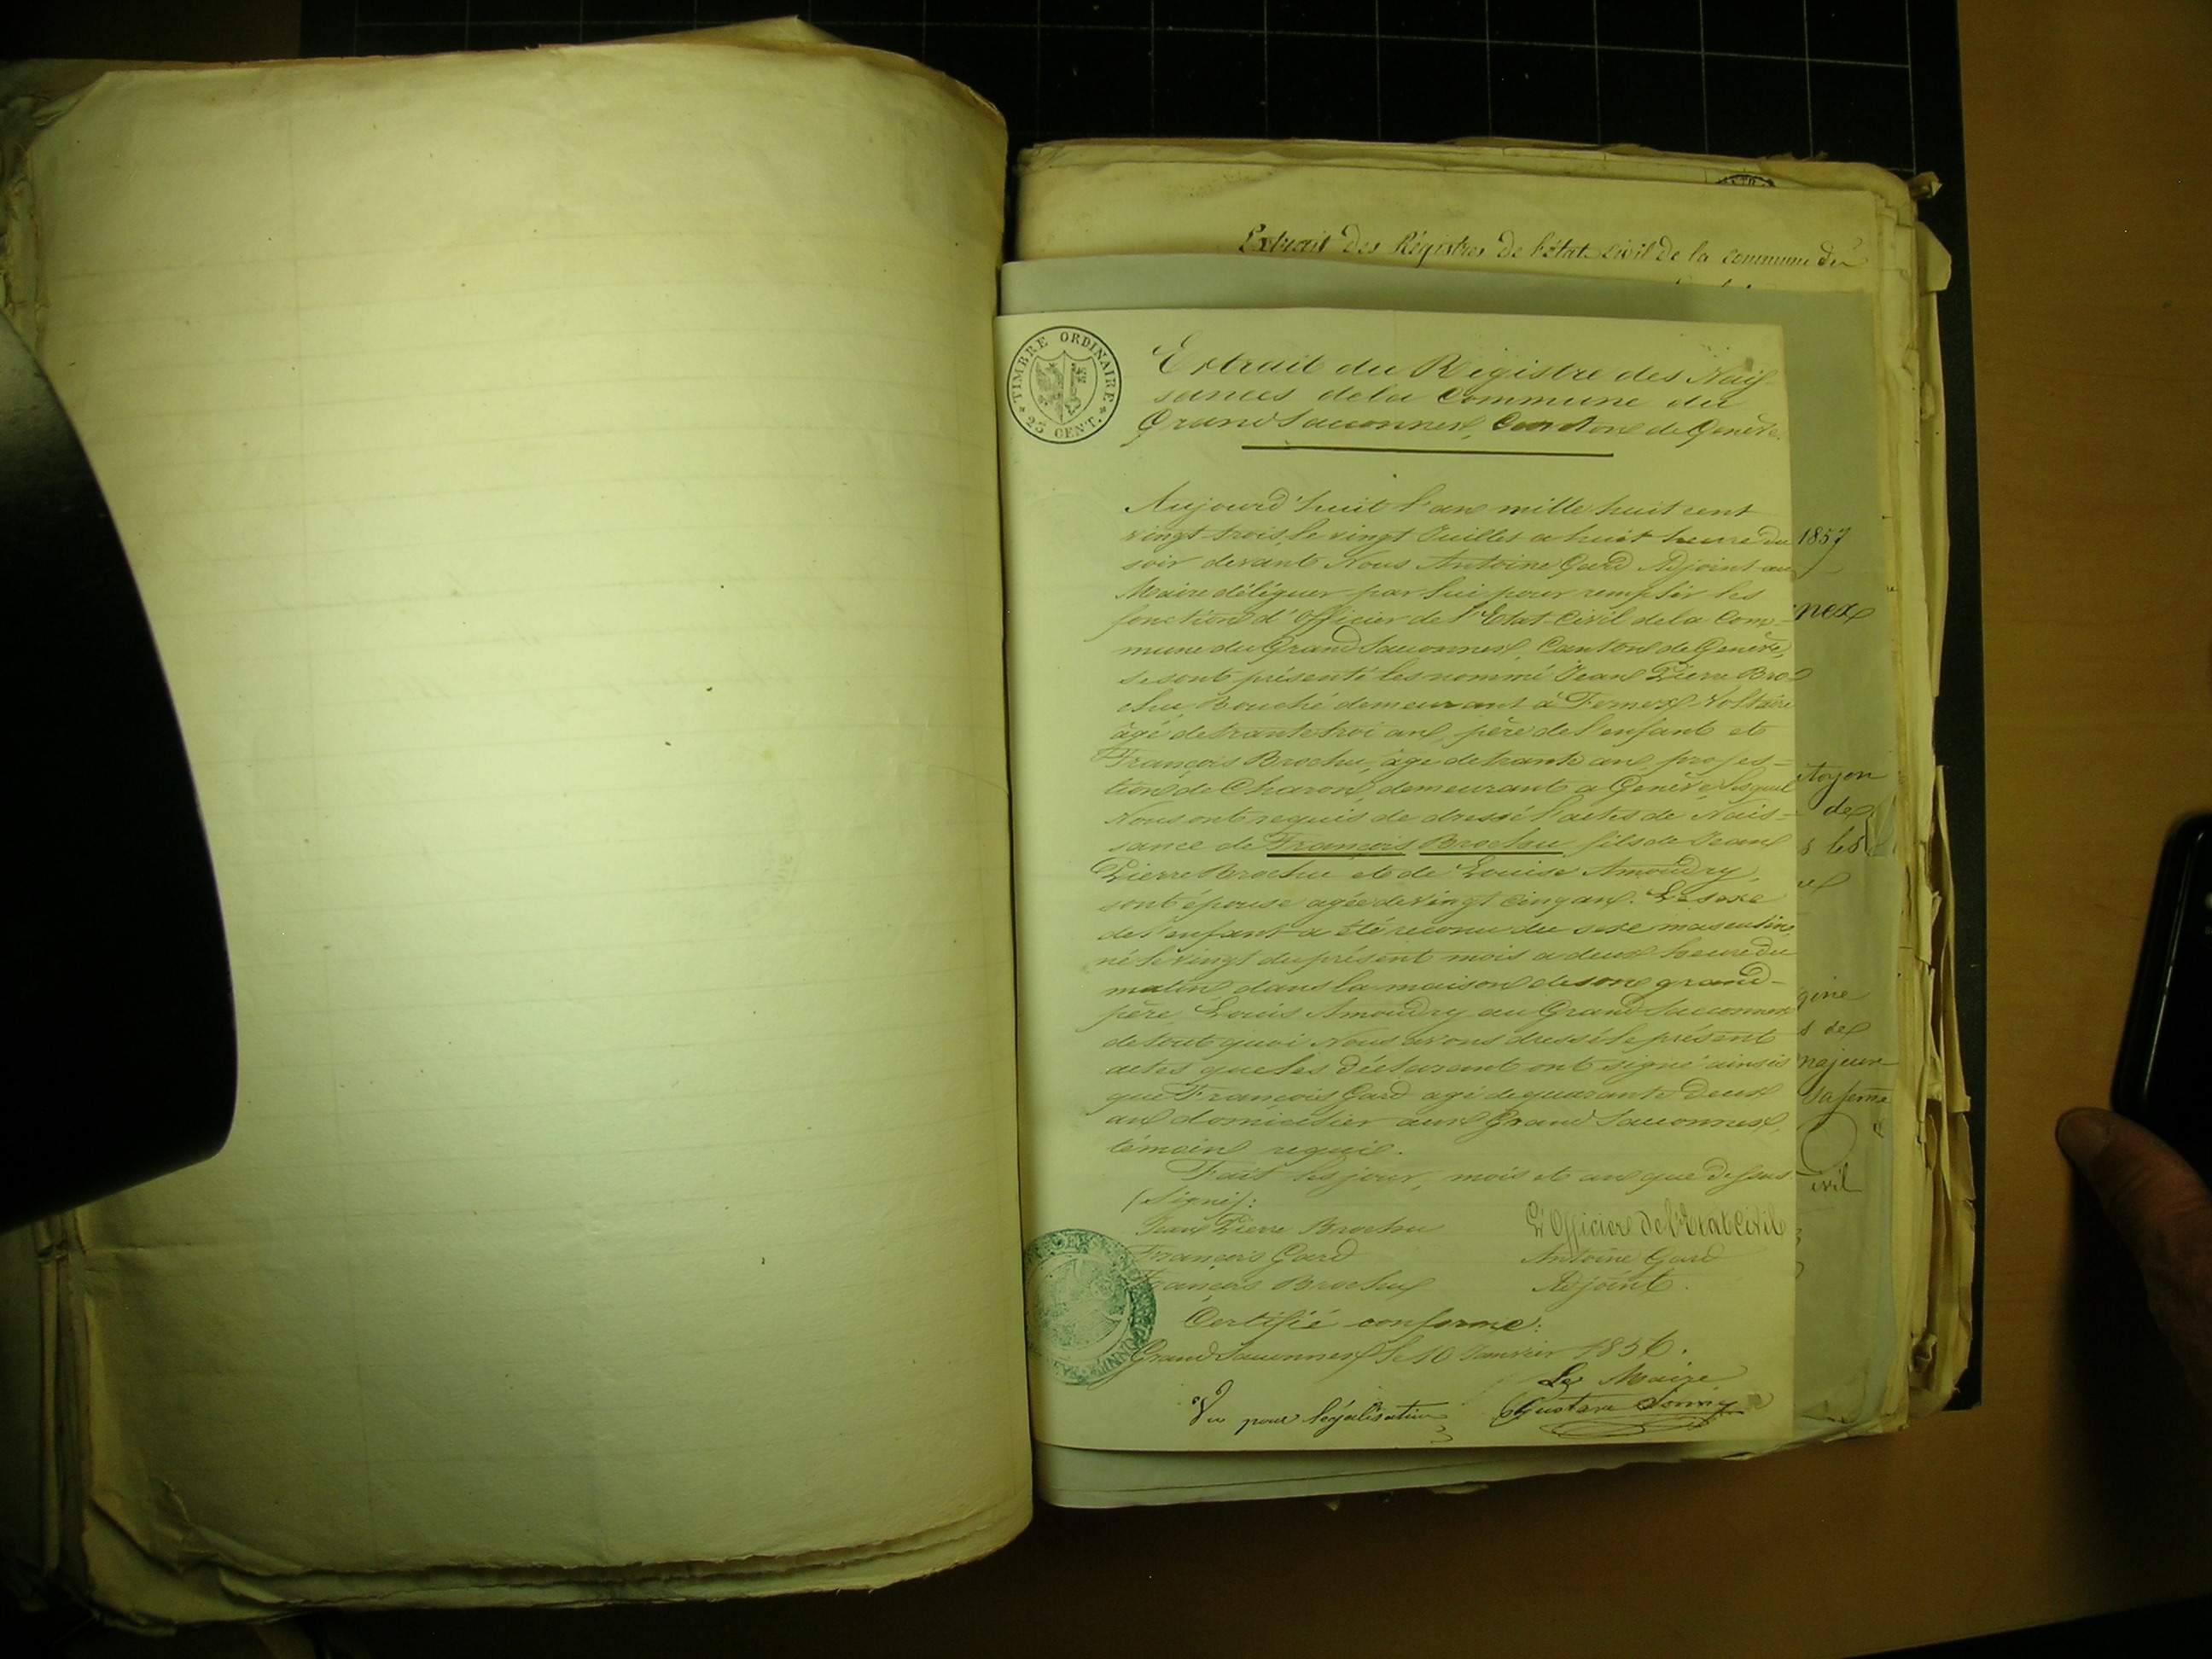 Extrait des Régistres de l'état civil de la commune du
TIMBRE ORDINAIRE
25 CENT.
Extrait du Régistre des Nais-
sances de la Commune du
Grand Saconnex, Canton de Genève.
Aujourd'huit l'an mille huit cent
vingt trois, le vingt Juillet a huit heure du
soir devant Nous Antoine Gard Adjoint au
Maire déléguer par lui pour remplir les
fonction d'Officier de l'Etat-Civil de la Com-
mune du Grand Saconnex, Canton de Genève,
se sont présenté les nommé Jean Pierre Bro-
chu, Bouché demeurant à Fernex-Voltaire
âgé de trante troi an, père de l'enfant et
François Brochu, âge de trante an, profes-
tion de Charon, demeurant a Genève, lesquel
Nous ont requis de dressé l'actes de Nais-
sance de François Brochu fils de Jean
Pierre Brochu et de Louise Amoudry,
sont épouse agée de vingt cinq an. Le sexe
de l'enfant a été reconu du sexe masculin,
né le vingt du présent mois a deux heure du
matin dans la maison de son grand-
père Louis Amoudry au Grand Saconnex
de tout quoi Nous avons dressé le présent
actes que les déclarant ont signé ainsis
que François Gard agé de quarante deux
an domicilier aux Grand Saconnex,
témoin requis.
Fait les jour, mois et an que dessus
(signé):
Jean Pierre Brochu
François Gard
François Brochu
L'Officier de l'Etat Civil
Antoine Gard
Adjoint.
Certifié conforme:
Grand Saconnex le 10 Janvier 1856.
Le Maire
Gustave
Vu pour légalisation
1857
nex
itoyen
de
s les
gine
s de
majeure
sa feme
ivil